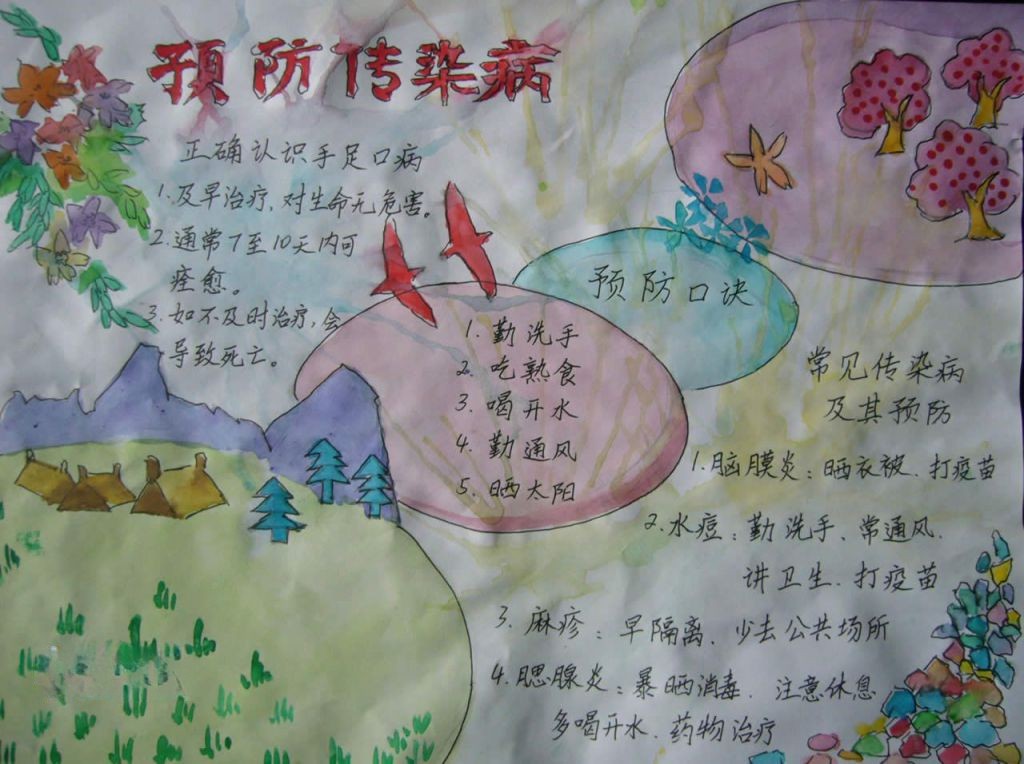 预防传染病
正确认识手足口病
1.及早治疗,对生命无危害。
2.通常7至10天内可
痊愈。
3.如不及时治疗,会
导致死亡。
预防口诀
1.勤洗手
2.吃熟食
3.喝开水
4.勤通风
5.晒太阳
常见传染病
及其预防
1.脑膜炎:晒衣被、打疫苗
2.水痘:勤洗手、常通风、
讲卫生、打疫苗
3.麻疹:早隔离、少去公共场所
4.腮腺炎:暴晒消毒、注意休息
多喝开水、药物治疗